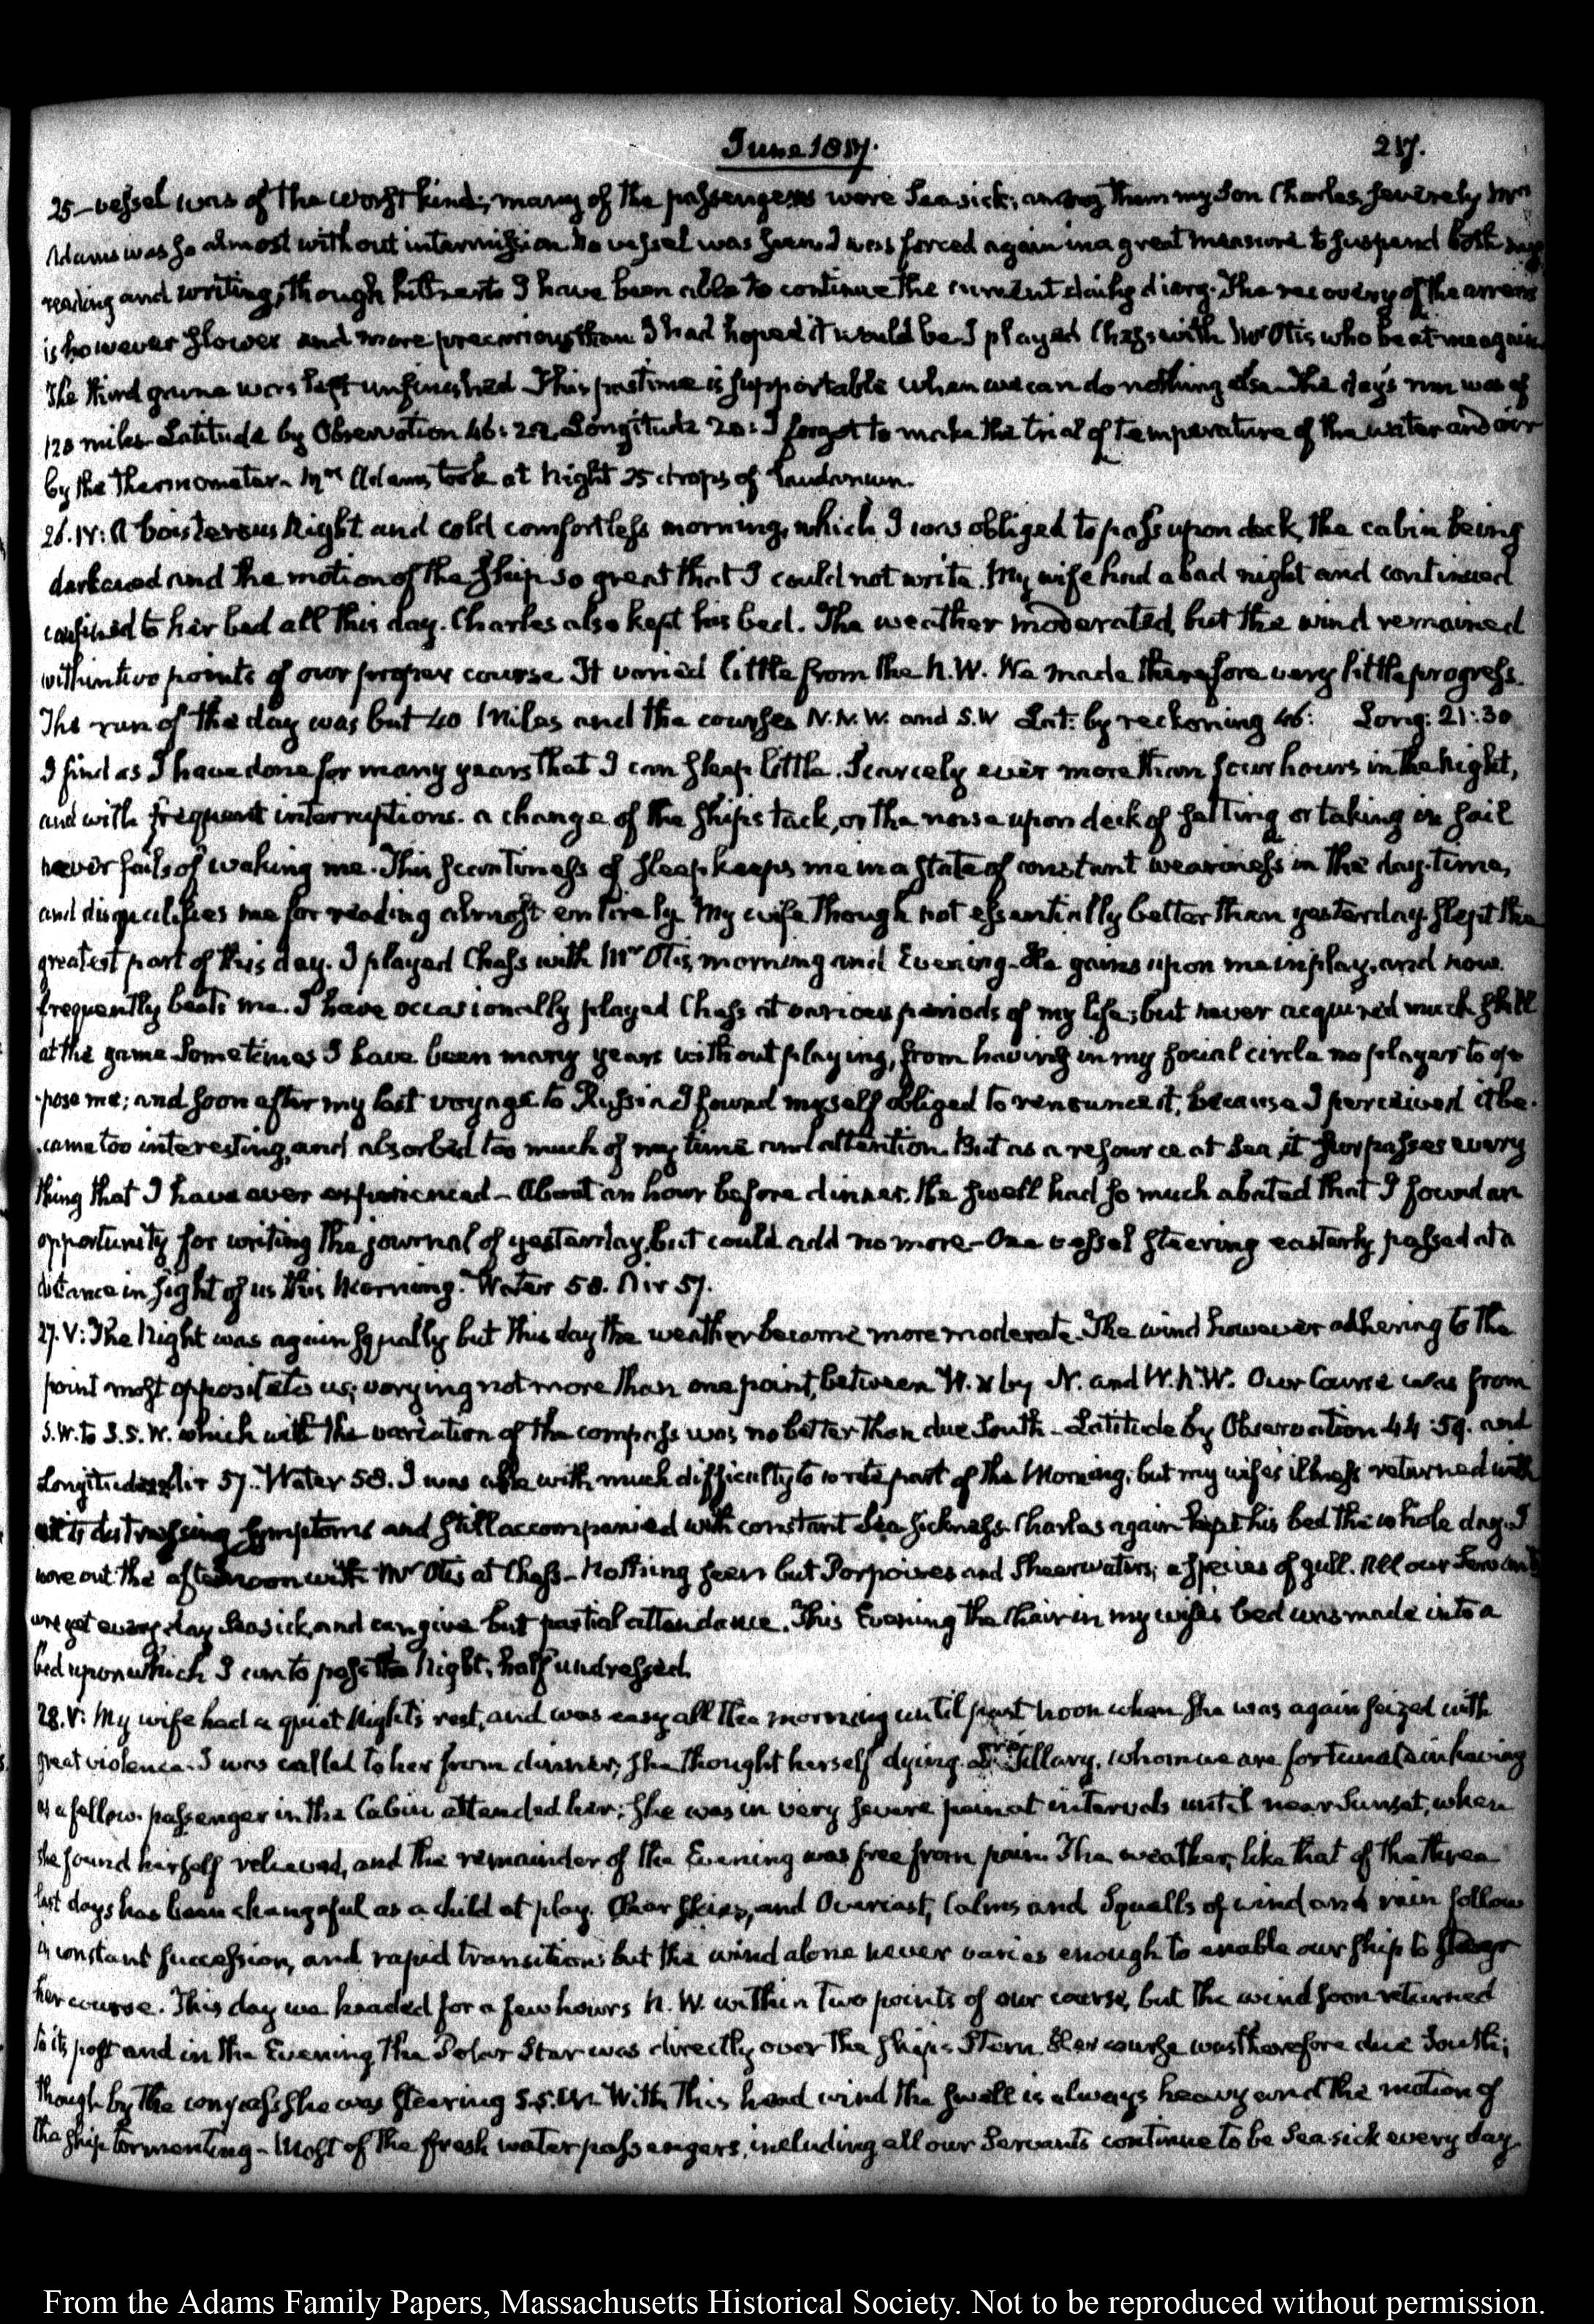 June 1817.
217.
25— vessel was of the worst kind; many of the passengers were Sea sick; among them my Son Charles, severely. Mrs
Adams was so almost without intermission. No vessel was seen. I was forced again in a great measure to suspend both my
reading and writing, though hitherto I have been able to continue the current daily diary. The recovery of the arrears
is however slower and more precarious than I had hoped it would be. I played Chess with Mr Otis who beat me again
The third game was left unfinished. This pastime is supportable when we can do nothing else. The day's run was of
128 miles. Latitude by Observation 46: 22. Longitude 20: I forgot to make the trial of temperature of the water and air
by the thermometer. Mrs Adams took at Night 25 drops of laudanum.
26. IV: A boisterous Night and cold comfortless morning, which I was obliged to pass upon deck, the cabin being
darkened and the motion of the Ship so great that I could not write. My wife had a bad night and continued
confined to her bed all this day. Charles also kept his bed. The weather moderated, but the wind remained
within two points of our proper course. It varied little from the N.W. We made therefore very little progress.
The run of the day was but 40 Miles and the courses N.N.W. and S.W Lat: by reckoning 46: Long: 21:30
I find as I have done for many years that I can sleep little. Scarcely ever more than four hours in the Night,
and with frequent interruptions. a change of the Ship's tack, or the noise upon deck of setting or taking in sail
never fails of waking me. This scantiness of sleep keeps me in a state of constant weariness in the day-time,
and disqualifies me for reading almost entirely. My wife though not essentially better than yesterday slept the
greatest part of this day. I played Chess with Mr Otis, morning and Evening. He gains upon me in play, and now
frequently beats me. I have occasionally played Chess at various periods of my life; but never acquired much skill
at the game. Sometimes I have been many years without playing, from having in my social circle no player to op-
-pose me; and soon after my last voyage to Russia I found myself obliged to renounce it, because I perceived it be-
-came too interesting, and absorbed too much of my time and attention. But as a resource at Sea, it surpasses every
thing that I have ever experienced— About an hour before dinner, the swell had so much abated that I found an
opportunity for writing the journal of yesterday, but could add no more— One vessel steering easterly passed at a
distance in sight of us this Morning. Water 58. Air 57.
27. V: The Night was again squally but this day the weather became more moderate. The wind however adhering to the
point most opposite to us; varying not more than one point, between W. by N. and W.N.W. Our Course was from
S.W. to S.S.W. which with the variation of the compass was no better than due South— Latitude by Observation 44:59. and
Longitude Air 57. Water 58. I was able with much difficulty to write part of the Morning; but my wife's illness returned with
all its distressing symptoms and still accompanied with constant Sea-sickness. Charles again kept his bed the whole day. I
wore out the afternoon with Mr Otis at Chess— Nothing seen but Porpoises and Sheerwaters; a species of gull. All our Servants
are yet every day Sea sick, and can give but partial attendance. This Evening the chair in my wife's bed was made into a
bed upon which I am to pass the Night, half undressed.
28. V: My wife had a quiet Night's rest, and was easy all the morning until past noon when she was again seized with
great violence. I was called to her from dinner; she thought herself dying. Dr Tillary, whom we are fortunate in having
as a fellow-passenger in the Cabin attended her; she was in very severe pain at intervals until near Sunset, when
she found herself relieved, and the remainder of the Evening was free from pain. The weather, like that of the three
last days has been changeful as a child at play. Clear skies, and Overcast, Calms and Squalls of wind and rain follow
in constant succession, and rapid transition; but the wind alone never varies enough to enable our ship to steer
her course. This day we headed for a few hours N.W. within two points of our course, but the wind soon returned
to its post and in the Evening the Polar Star was directly over the ship's Stern. Her course was therefore due South;
though by the compass she was steering S.S.W. With this head wind the swell is always heavy and the motion of
the ship tormenting— Most of the fresh water passengers, including all our Servants continue to be Sea sick every day
From the Adams Family Papers, Massachusetts Historical Society. Not to be reproduced without permission.